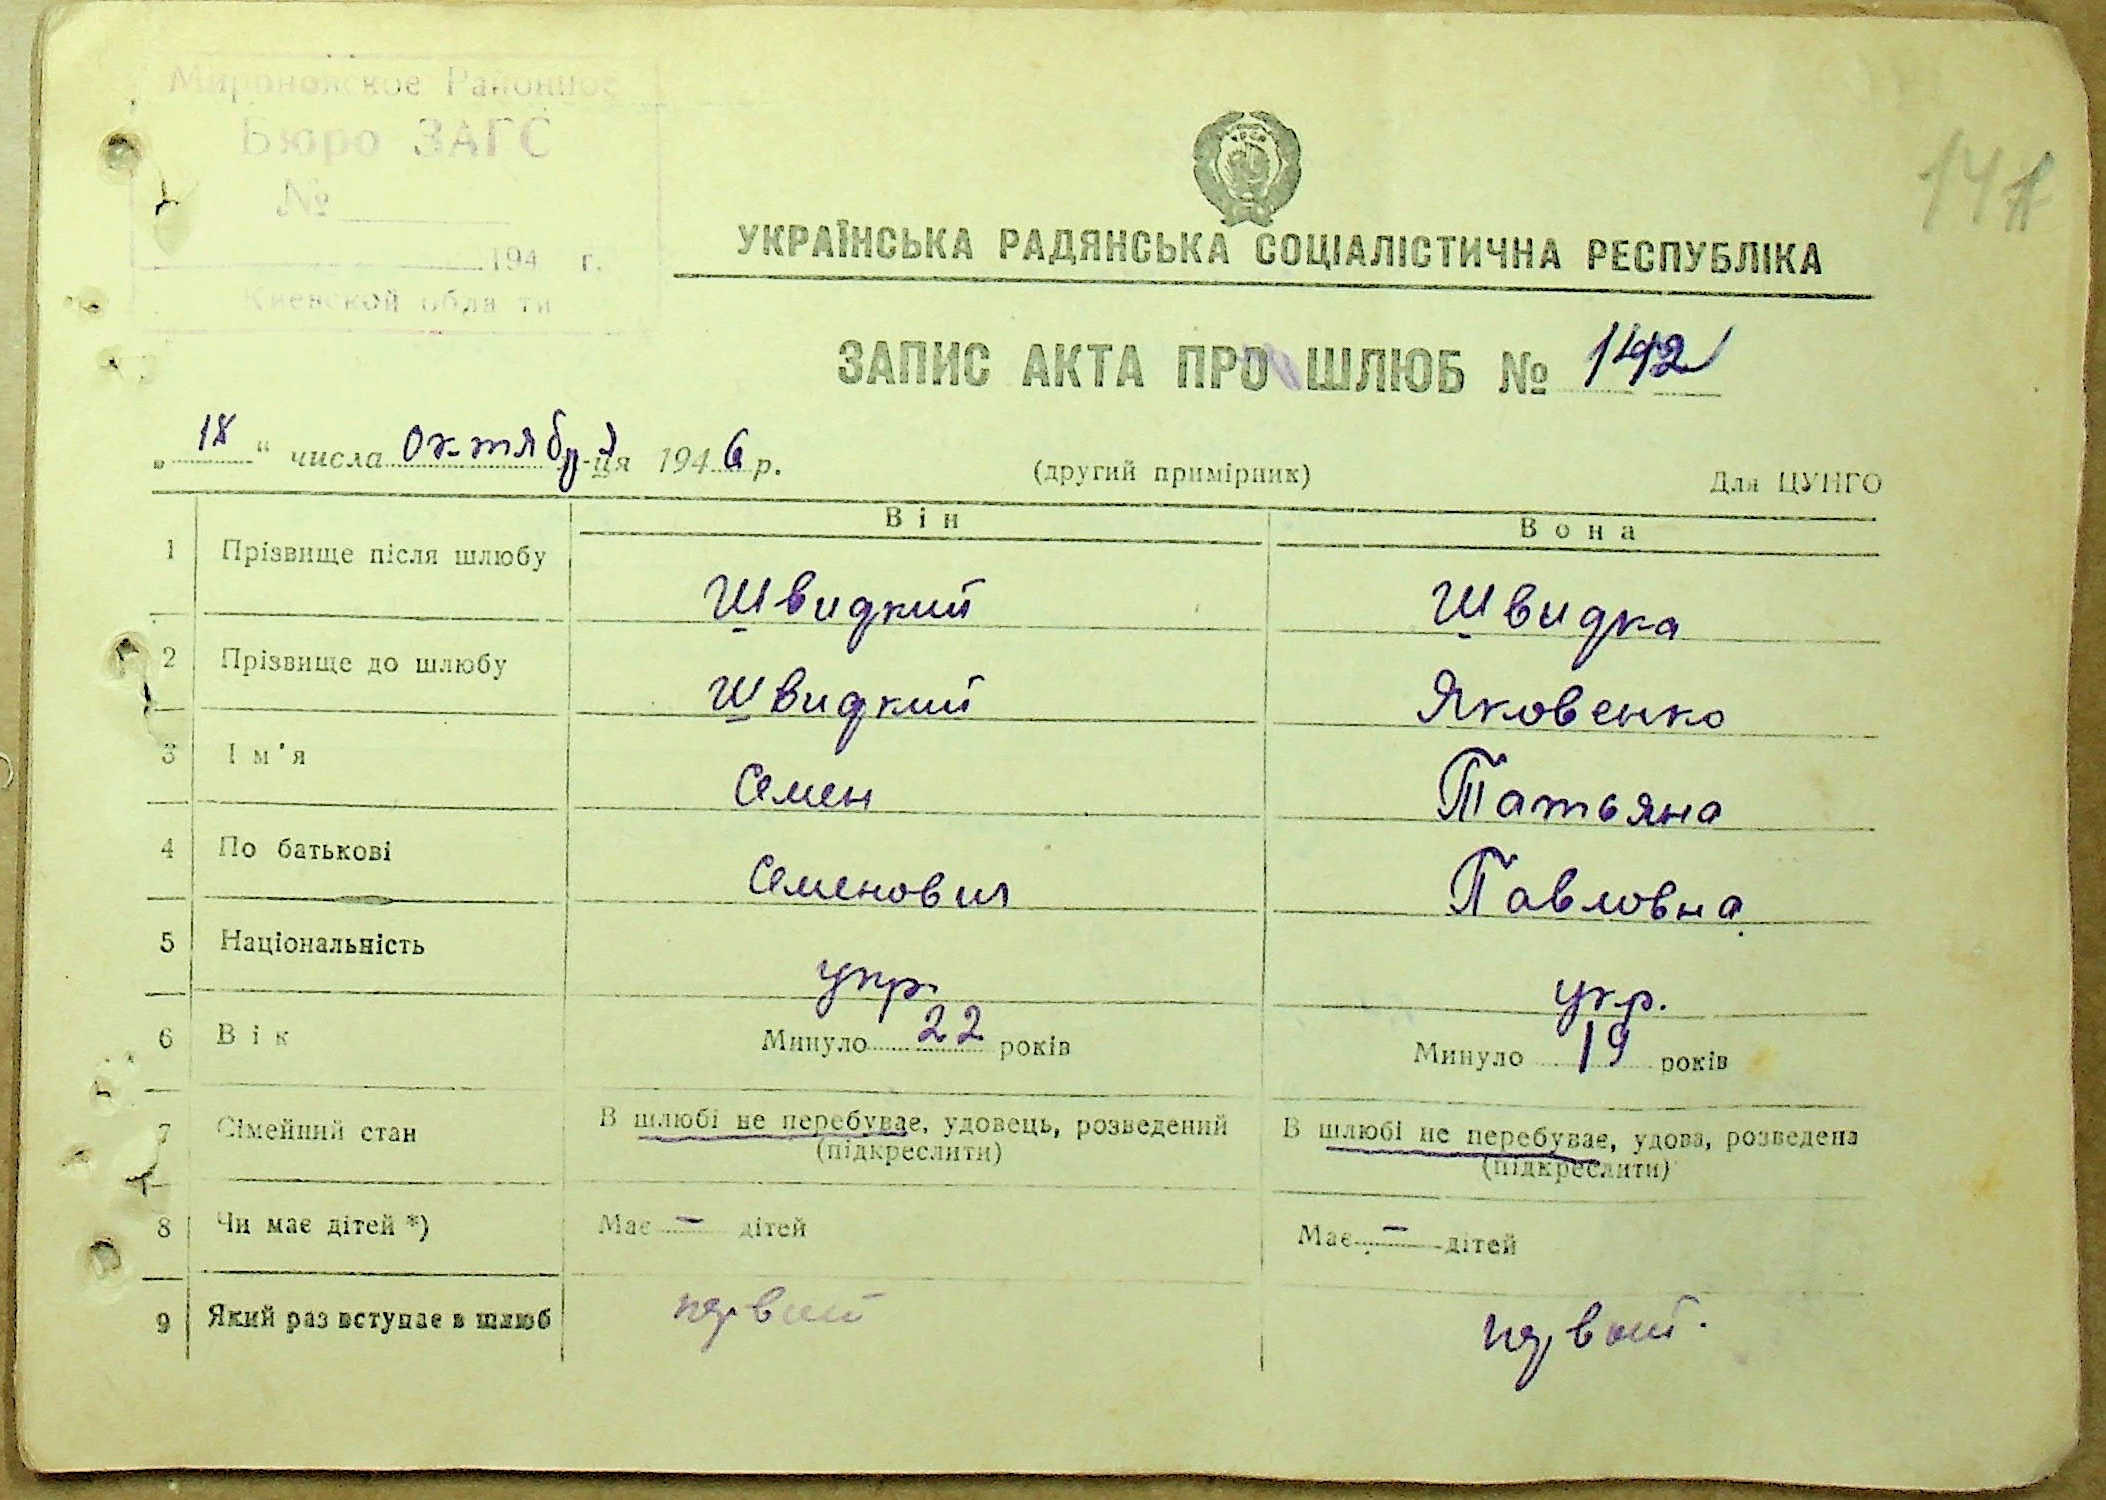 Мироновское Районное
Бюро ЗАГС
№
194 г.
Киевской области
УКРАЇНСЬКА РАДЯНСЬКА СОЦІАЛІСТИЧНА РЕСПУБЛІКА
ЗАПИС АКТА ПРО ШЛЮБ № 142
„ 18 “ числа октября ця 1946 р.
(другий примірник)
Для ЦУНГО
Він
Вона
1 Прізвище після шлюбу Швидкий Швидка
2 Прізвище до шлюбу Швидкий Яковенко
3 Ім'я Семен Татьяна
4 По батькові Семенович Павловна
5 Національність укр. укр.
6 Вік Минуло 22 років Минуло 19 років
7 Сімейний стан В шлюбі не перебуває, удовець, розведений В шлюбі не перебуває, удова, розведена
(підкреслити) (підкреслити)
8 Чи має дітей *) Має – дітей Має – дітей
9 Який раз вступає в шлюб первый первый.